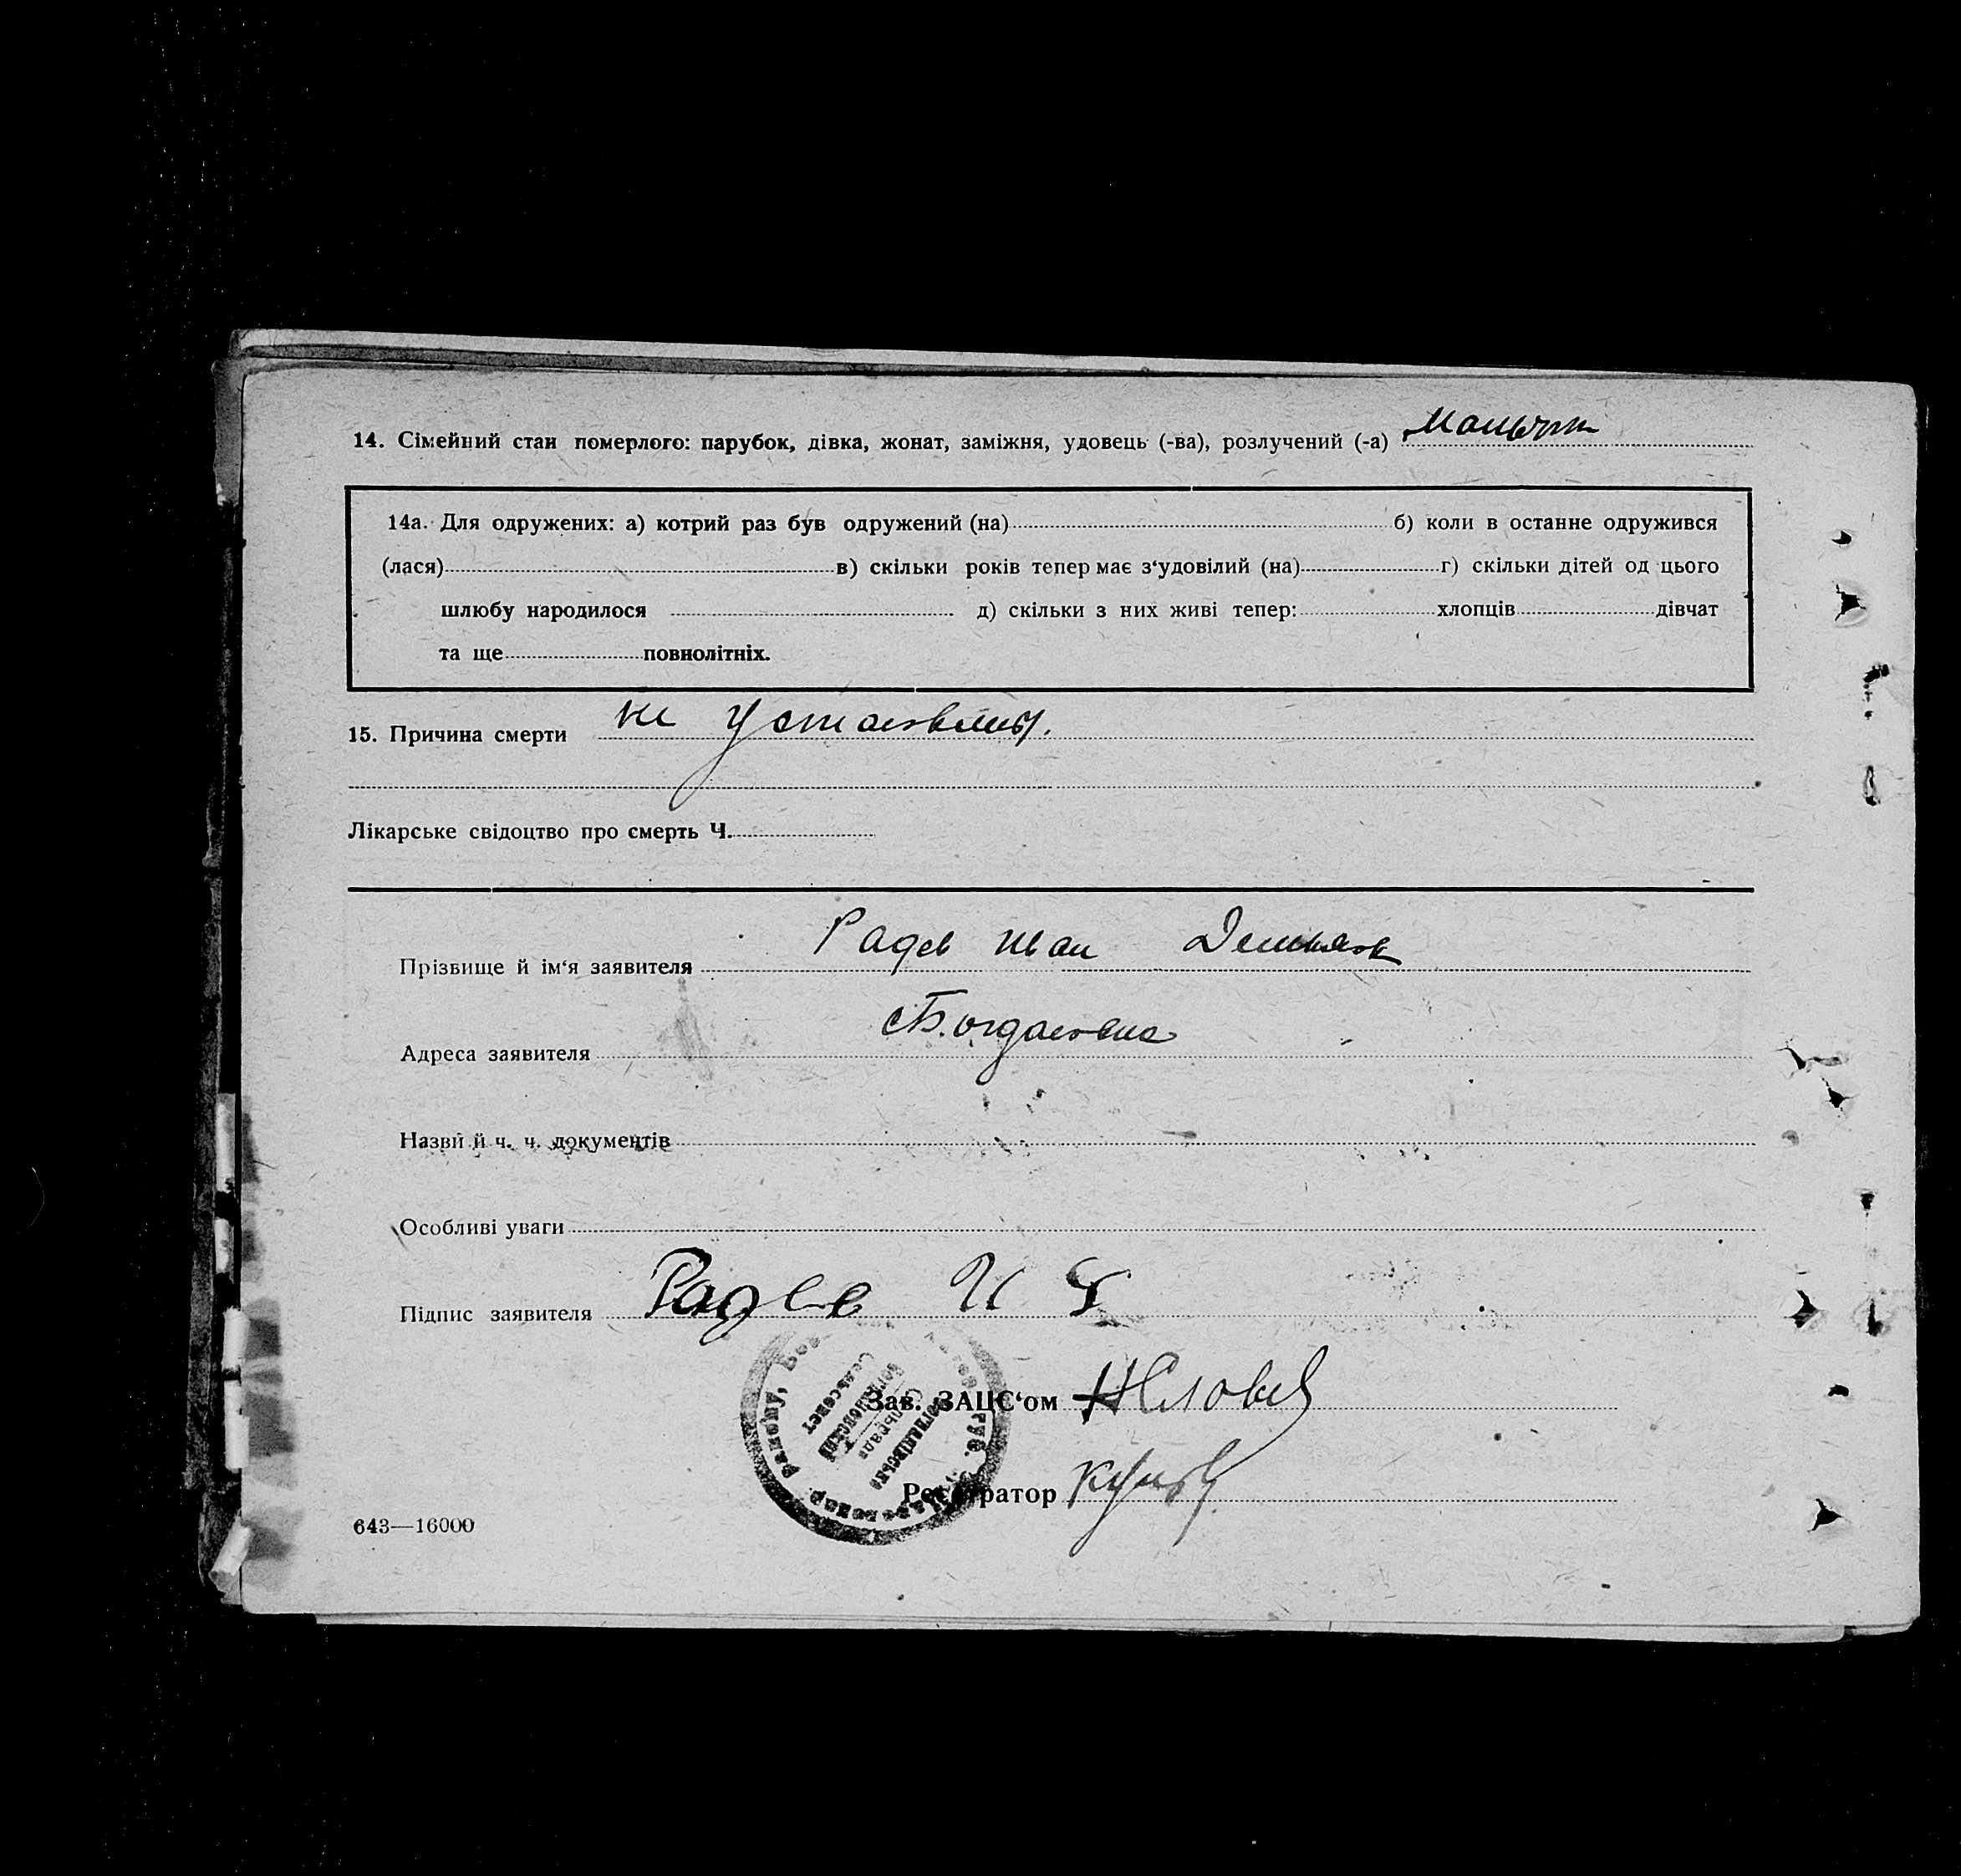 14. Сімейний стан померлого: парубок, дівка, жонат, заміжня, удовець (-ва), розлучений (-а) Мальчик
14а. Для одружених: а) котрий раз був одружений (на) б) коли в останнє одружився
(лася) в) скільки років тепер має з‘удовілий (на) г) скільки дітей од цього
шлюбу народилося д) скільки з них живі тепер: хлопців дівчат
та ще повнолітніх.
15. Причина смерти не установлены.
Лікарське свідоцтво про смерть Ч.
Прізвище й ім‘я заявителя Радев Иван Демьянов
Адреса заявителя с Богдановка
Назви й ч. ч. документів
Особливі уваги
Підпис заявителя Радев И
Зав. ЗАЦС‘ом
Реєстратор
643—16000